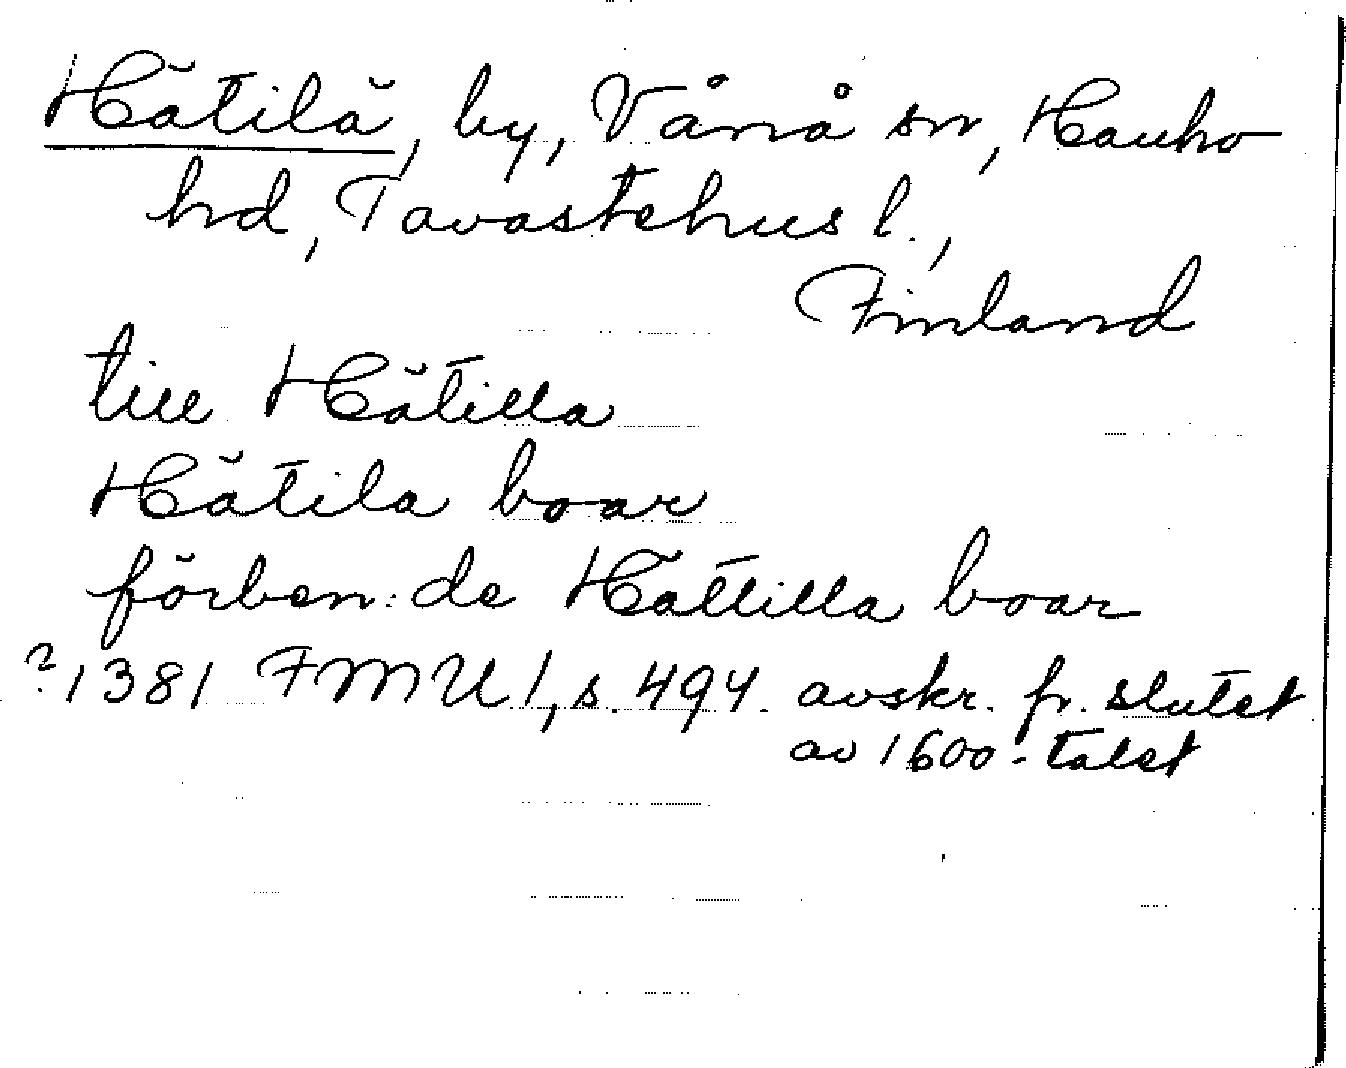 Hätilä, by, Vånå sn, Hauho
hd, Tavastehus l.,
Finland
till Hätilla
Hätila boar
förben: de Hättilla boar
? 1381 FMU 1, s. 494. avskr. fr. slutet
av 1600-talet